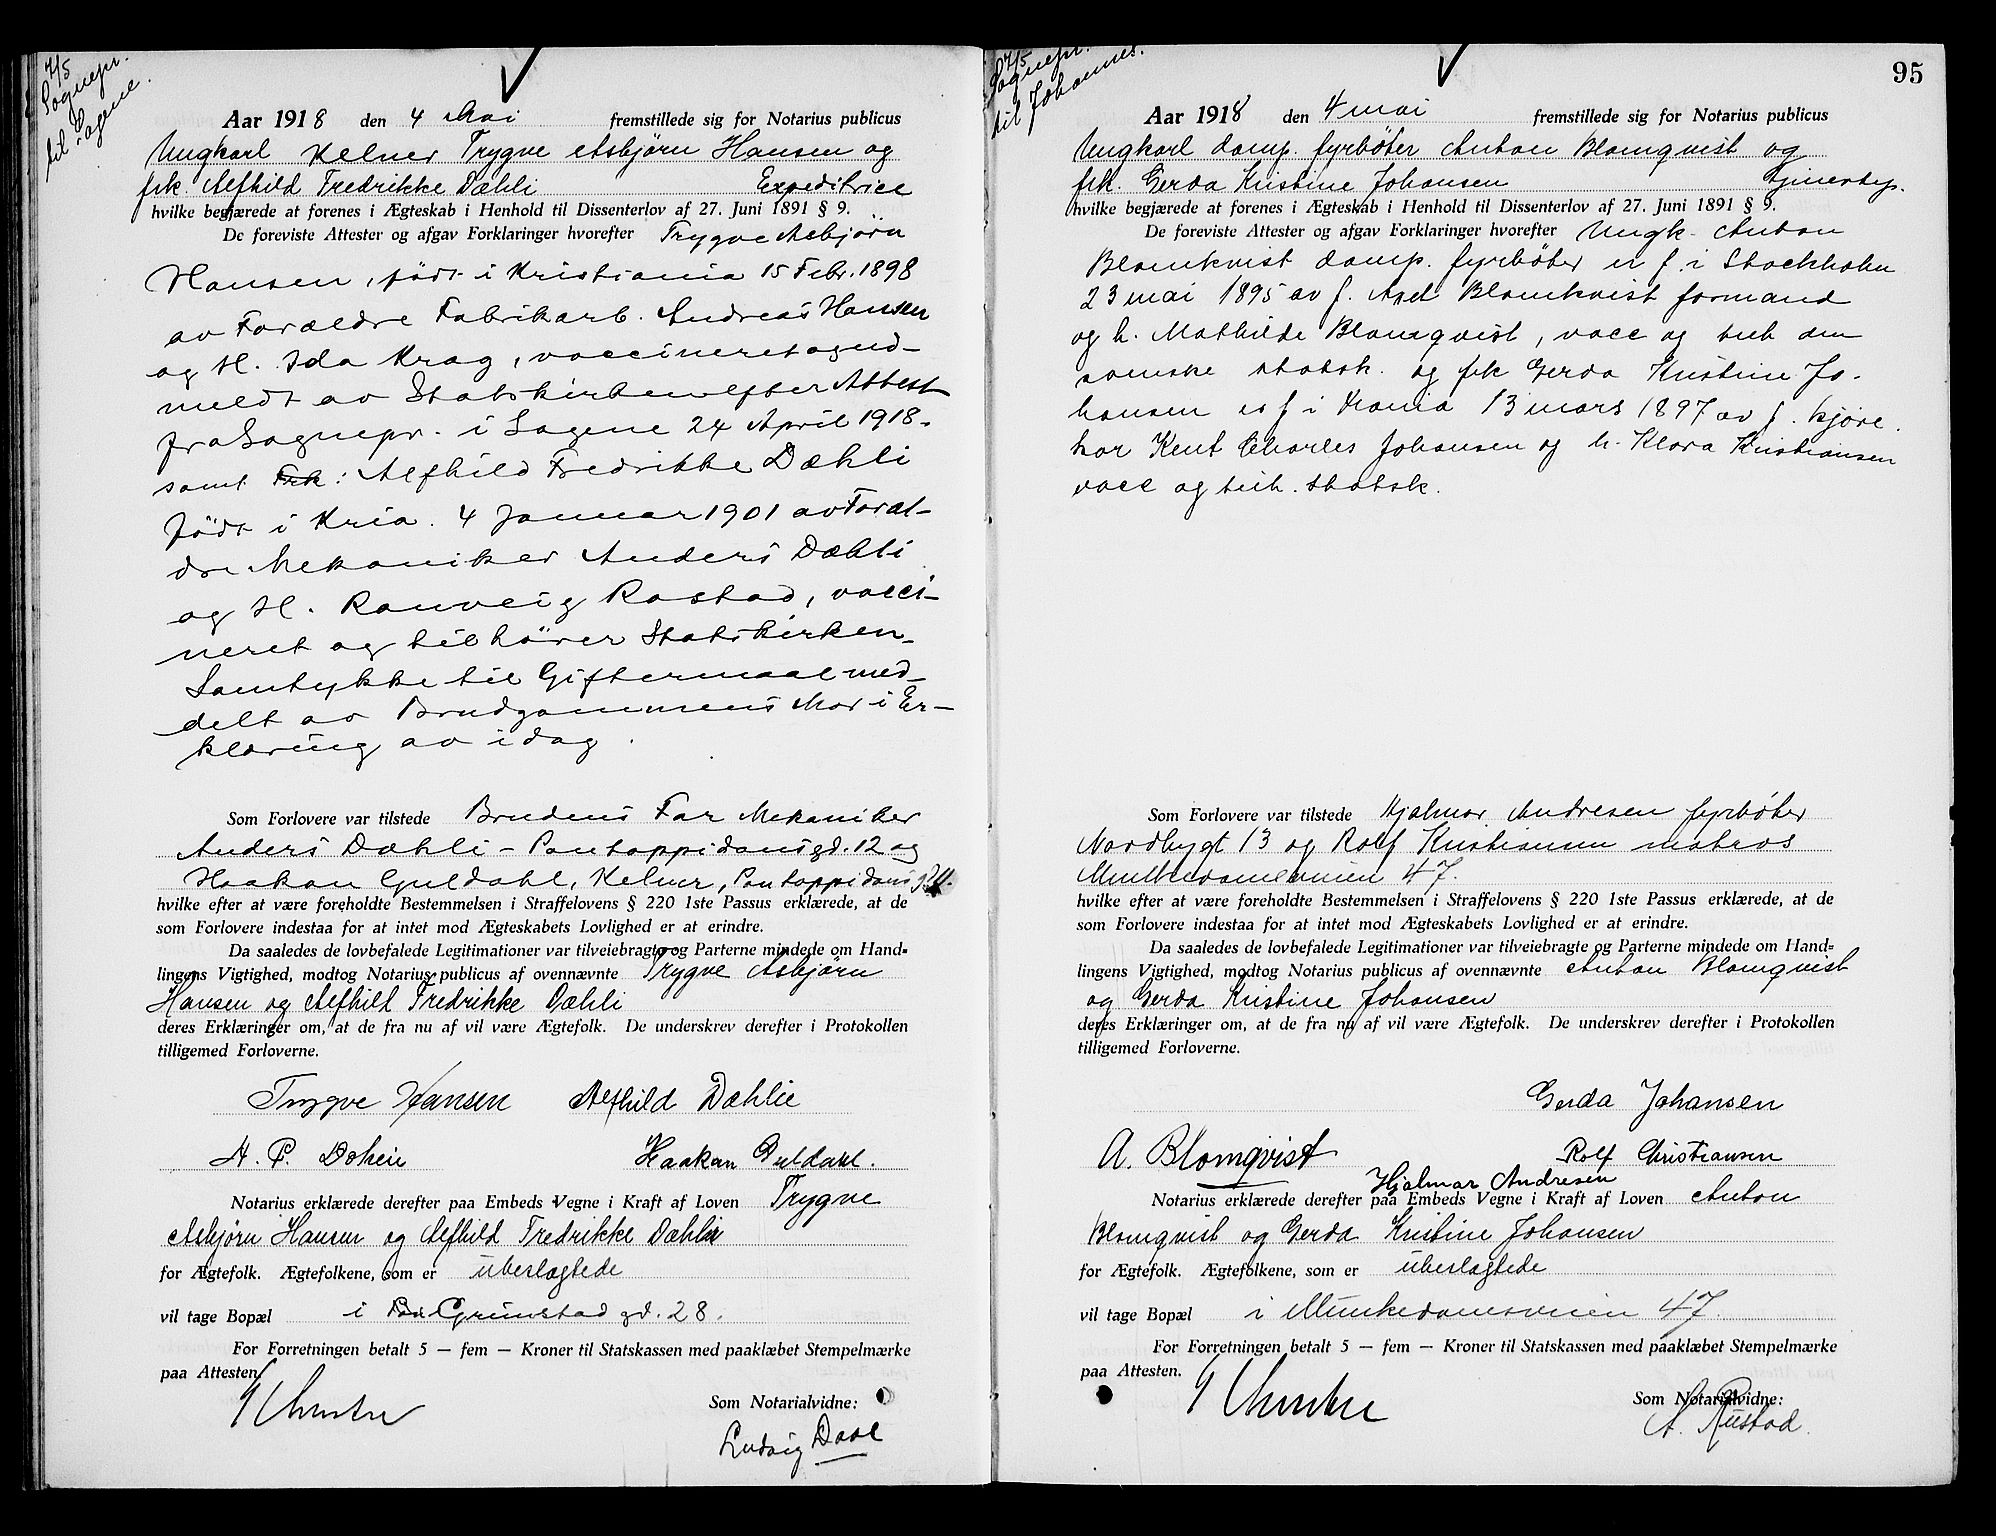 7/5
Sognepr.
til Sagene.
Aar 1918 den 4 Mai fremstillede sig for Notarius publicus
Ungkarl Kelner Trygve Asbjørn Hansen og
frk. Alfhild Fredrikke Dæhli Expeditrice
hvilke begjærede at forenes i Ægteskab i Henhold til Dissenterlov af 27. Juni 1891 § 9.
De foreviste Attester og afgav Forklaringer hvorefter Trygve Asbjørn
Hansen, født i Kristiania 15 Febr. 1898
av Forældre Fabrikarb. Andreas Hansen
og H. Ida Krag, vaccineret og ud-
meldt av Statskirken efter Attest
fra Sognepr. i Sagene 24 April 1918.
samt Frk: Alfhild Fredrikke Dæhli
født i Kria. 4 Januar 1901 av Foræl-
dre Mekaniker Anders Dæhli
og H. Ranveig Rastad, vacci-
neret og tilhører Statskirken.
Samtykke til Giftermaal med-
delt av Brudgommens Mor i Er-
klæring av idag.
Som Forlovere var tilstede Brudens Far Mekaniker
Anders Dæhli - Pontoppidansgd. 12 og
Haakan Guldahl, Kelner, Pontoppidans g. 11.
hvilke efter at være foreholdte Bestemmelsen i Straffelovens § 220 1ste Passus erklærede, at de
som Forlovere indestaa for at intet mod Ægteskabets Lovlighed er at erindre.
Da saaledes de lovbefalede Legitimationer var tilveiebragte og Parterne mindede om Hand-
lingens Vigtighed, modtog Notarius publicus af ovennævnte Trygve Asbjørn
Hansen og Alfhild Fredrikke Dæhli
deres Erklæringer om, at de fra nu af vil være Ægtefolk. De underskrev derefter i Protokollen
tilligemed Forloverne.
Trygve Hansen Alfhild Dæhlie
A. P. Haakan Guldahl.
Notarius erklærede derefter paa Embeds Vegne i Kraft af Loven Trygve
Asbjørn Hansen og Alfhild Fredrikke Dæhli
for Ægtefolk. Ægtefolkene, som er ubeslægtede
vil tage Bopæl i Grimstad gd. 28.
For Forretningen betalt 5 — fem — Kroner til Statskassen med paaklæbet Stempelmærke
paa Attesten.
Som Notarialvidne:
Ludvig Daae
95
7/5
Sognepr.
til Johannes.
Aar 1918 den 4 mai fremstillede sig for Notarius publicus
Ungkarl damp. fyrbøter Anton Blomqvist og
frk. Gerda Kristine Johansen
hvilke begjærede at forenes i Ægteskab i Henhold til Dissenterlov af 27. Juni 1891 § 9.
De foreviste Attester og afgav Forklaringer hvorefter Ungk. Anton
Blomkvist damp. fyrbøter er f. i Stockholm
23 mai 1895 av f. Axel Blomkvist formand
og h. Mathilde Blomqvist, vacc og tilh den
svenske statsk. og frk Gerda Kristine Jo-
hansen er f i Krania 13 mars 1897 av f. kjøre.
kar Kent Charles Johansen og h. Klara Kristiansen
vacc og tilh. statsk.
Som Forlovere var tilstede Hjalmar Andresen fyrbøter
Nordbygt 13 og Rolf Kristiansen matros
Munkedamsveien 47.
hvilke efter at være foreholdte Bestemmelsen i Straffelovens § 220 1ste Passus erklærede, at de
som Forlovere indestaa for at intet mod Ægteskabets Lovlighed er at erindre.
Da saaledes de lovbefalede Legitimationer var tilveiebragte og Parterne mindede om Hand-
lingens Vigtighed, modtog Notarius publicus af ovennævnte Anton Blomqvist
og Gerda Kristine Johansen
deres Erklæringer om, at de fra nu af vil være Ægtefolk. De underskrev derefter i Protokollen
tilligemed Forloverne.
Gerda Johansen
A. Blomqvist Rolf Christiansen
Hjalmar Andresen
Notarius erklærede derefter paa Embeds Vegne i Kraft af Loven Anton
Blomqvist og Gerda Kristine Johansen
for Ægtefolk. Ægtefolkene, som er ubeslægtede
vil tage Bopæl i Munkedamsveien 47.
For Forretningen betalt 5 — fem — Kroner til Statskassen med paaklæbet Stempelmærke
paa Attesten.
Som Notarialvidne:
A. Rustad.